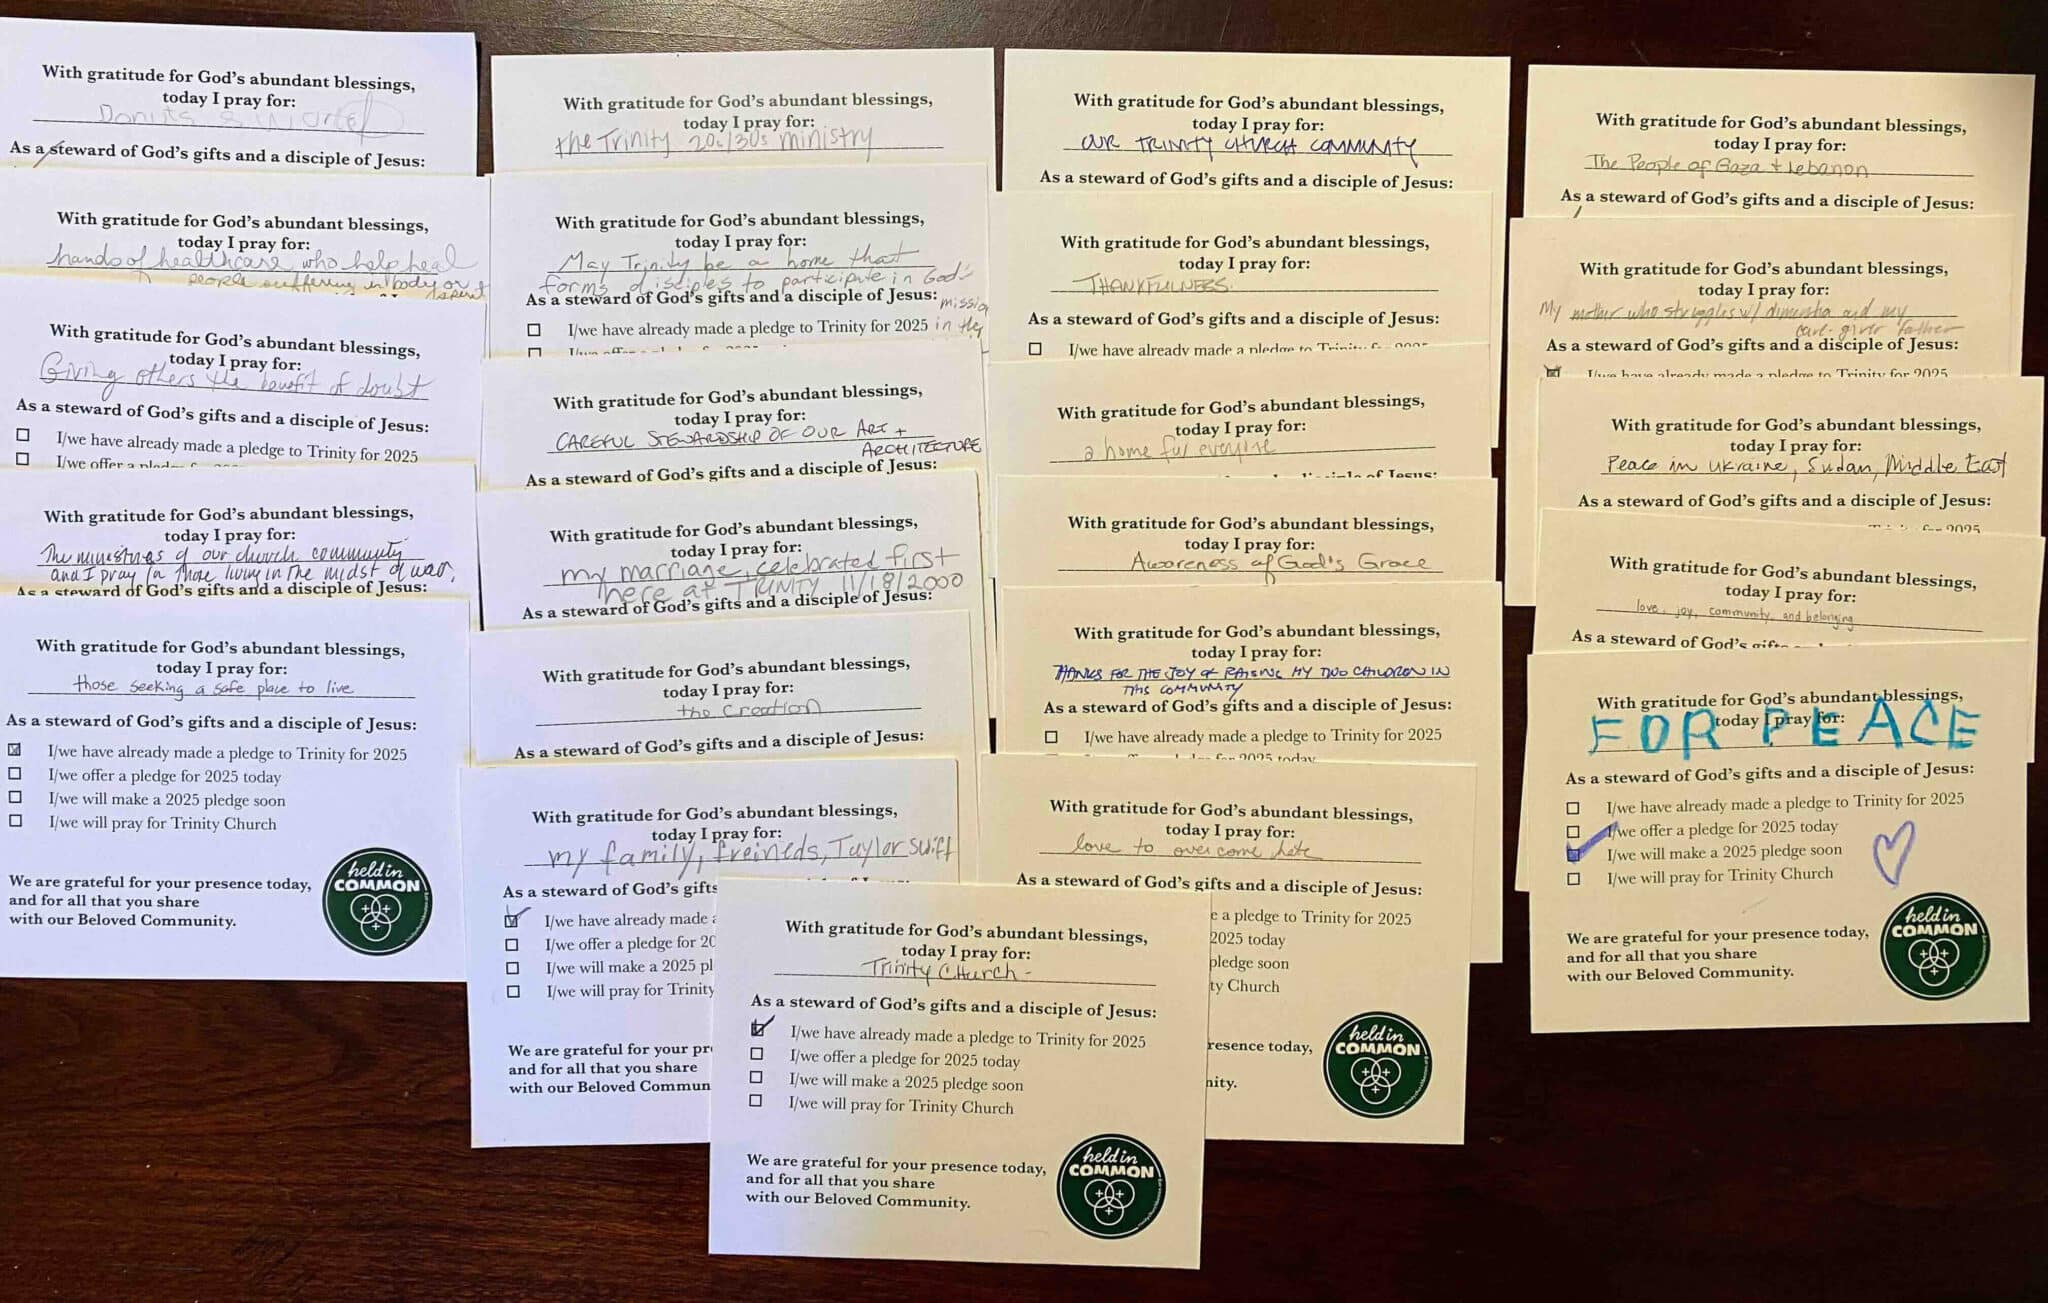 With gratitude for God's abundant blessings,
today I pray for:
Donuts &
As a steward of God's gifts and a disciple of Jesus:
With gratitude for God's abundant blessings,
today I pray for:
hands of healthcare who help heal
people suffering in body or
With gratitude for God's abundant blessings,
today I pray for:
Giving others the benefit of doubt
As a steward of God's gifts and a disciple of Jesus:
I/we have already made a pledge to Trinity for 2025
I/we offer a
With gratitude for God's abundant blessings,
today I pray for:
The ministries of our church community
and I pray for those living in the midst of war,
As a steward of God's gifts and a disciple of Jesus:
With gratitude for God's abundant blessings,
today I pray for:
those seeking a safe place to live
As a steward of God's gifts and a disciple of Jesus:
I/we have already made a pledge to Trinity for 2025
I/we offer a pledge for 2025 today
I/we will make a 2025 pledge soon
I/we will pray for Trinity Church
We are grateful for your presence today,
and for all that you share
with our Beloved Community.
held in
COMMON
With gratitude for God's abundant blessings,
today I pray for:
the Trinity 20s/30s ministry
With gratitude for God's abundant blessings,
today I pray for:
May Trinity be a home that
forms disciples to participate in God's
mission
As a steward of God's gifts and a disciple of Jesus:
I/we have already made a pledge to Trinity for 2025
in the
With gratitude for God's abundant blessings,
today I pray for:
CAREFUL STEWARDSHIP OF OUR ART +
ARCHITECTURE
As a steward of God's gifts and a disciple of Jesus:
With gratitude for God's abundant blessings,
today I pray for:
my marriage, celebrated first
here at TRINITY 11/18/2000
As a steward of God's gifts and a disciple of Jesus:
With gratitude for God's abundant blessings,
today I pray for:
the Creation
As a steward of God's gifts and a disciple of Jesus:
With gratitude for God's abundant blessings,
today I pray for:
my family, freineds, Taylor swift
As a steward of God's gifts
I/we have already made a
I/we offer a pledge for 20
I/we will make a 2025 pl
I/we will pray for Trinity
We are grateful for your pr
and for all that you share
with our Beloved Commun
With gratitude for God's abundant blessings,
today I pray for:
Trinity Church -
As a steward of God's gifts and a disciple of Jesus:
I/we have already made a pledge to Trinity for 2025
I/we offer a pledge for 2025 today
I/we will make a 2025 pledge soon
I/we will pray for Trinity Church
We are grateful for your presence today,
and for all that you share
with our Beloved Community.
held in
COMMON
With gratitude for God's abundant blessings,
today I pray for:
OUR TRINITY CHURCH COMMUNITY
As a steward of God's gifts and a disciple of Jesus:
With gratitude for God's abundant blessings,
today I pray for:
THANKFULNESS.
As a steward of God's gifts and a disciple of Jesus:
I/we have already made a pledge to Trinity for 2025
With gratitude for God's abundant blessings,
today I pray for:
a home for everyone
disciple of Jesus:
With gratitude for God's abundant blessings,
today I pray for:
Awareness of God's Grace
With gratitude for God's abundant blessings,
today I pray for:
THANKS FOR THE JOY OF RAISING MY TWO CHILDREN IN
THIS COMMUNITY
As a steward of God's gifts and a disciple of Jesus:
I/we have already made a pledge to Trinity for 2025
for 2025 today
With gratitude for God's abundant blessings,
today I pray for:
love to overcome hate
As a steward of God's gifts and a disciple of Jesus:
e a pledge to Trinity for 2025
2025 today
pledge soon
ty Church
resence today,
nity.
held in
COMMON
With gratitude for God's abundant blessings,
today I pray for:
The People of Gaza + Lebanon
As a steward of God's gifts and a disciple of Jesus:
With gratitude for God's abundant blessings,
today I pray for:
My mother who struggles w/ dimentia and my
care-giver father
As a steward of God's gifts and a disciple of Jesus:
I/we have already made a pledge to Trinity for 2025
With gratitude for God's abundant blessings,
today I pray for:
Peace in Ukraine, Sudan, Middle East
As a steward of God's gifts and a disciple of Jesus:
for 2025
With gratitude for God's abundant blessings,
today I pray for:
love, joy, community, and belonging
As a steward of God's gifts
With gratitude for God's abundant blessings,
today I pray for:
FOR PEACE
As a steward of God's gifts and a disciple of Jesus:
I/we have already made a pledge to Trinity for 2025
I/we offer a pledge for 2025 today
I/we will make a 2025 pledge soon
I/we will pray for Trinity Church
We are grateful for your presence today,
and for all that you share
with our Beloved Community.
held in
COMMON